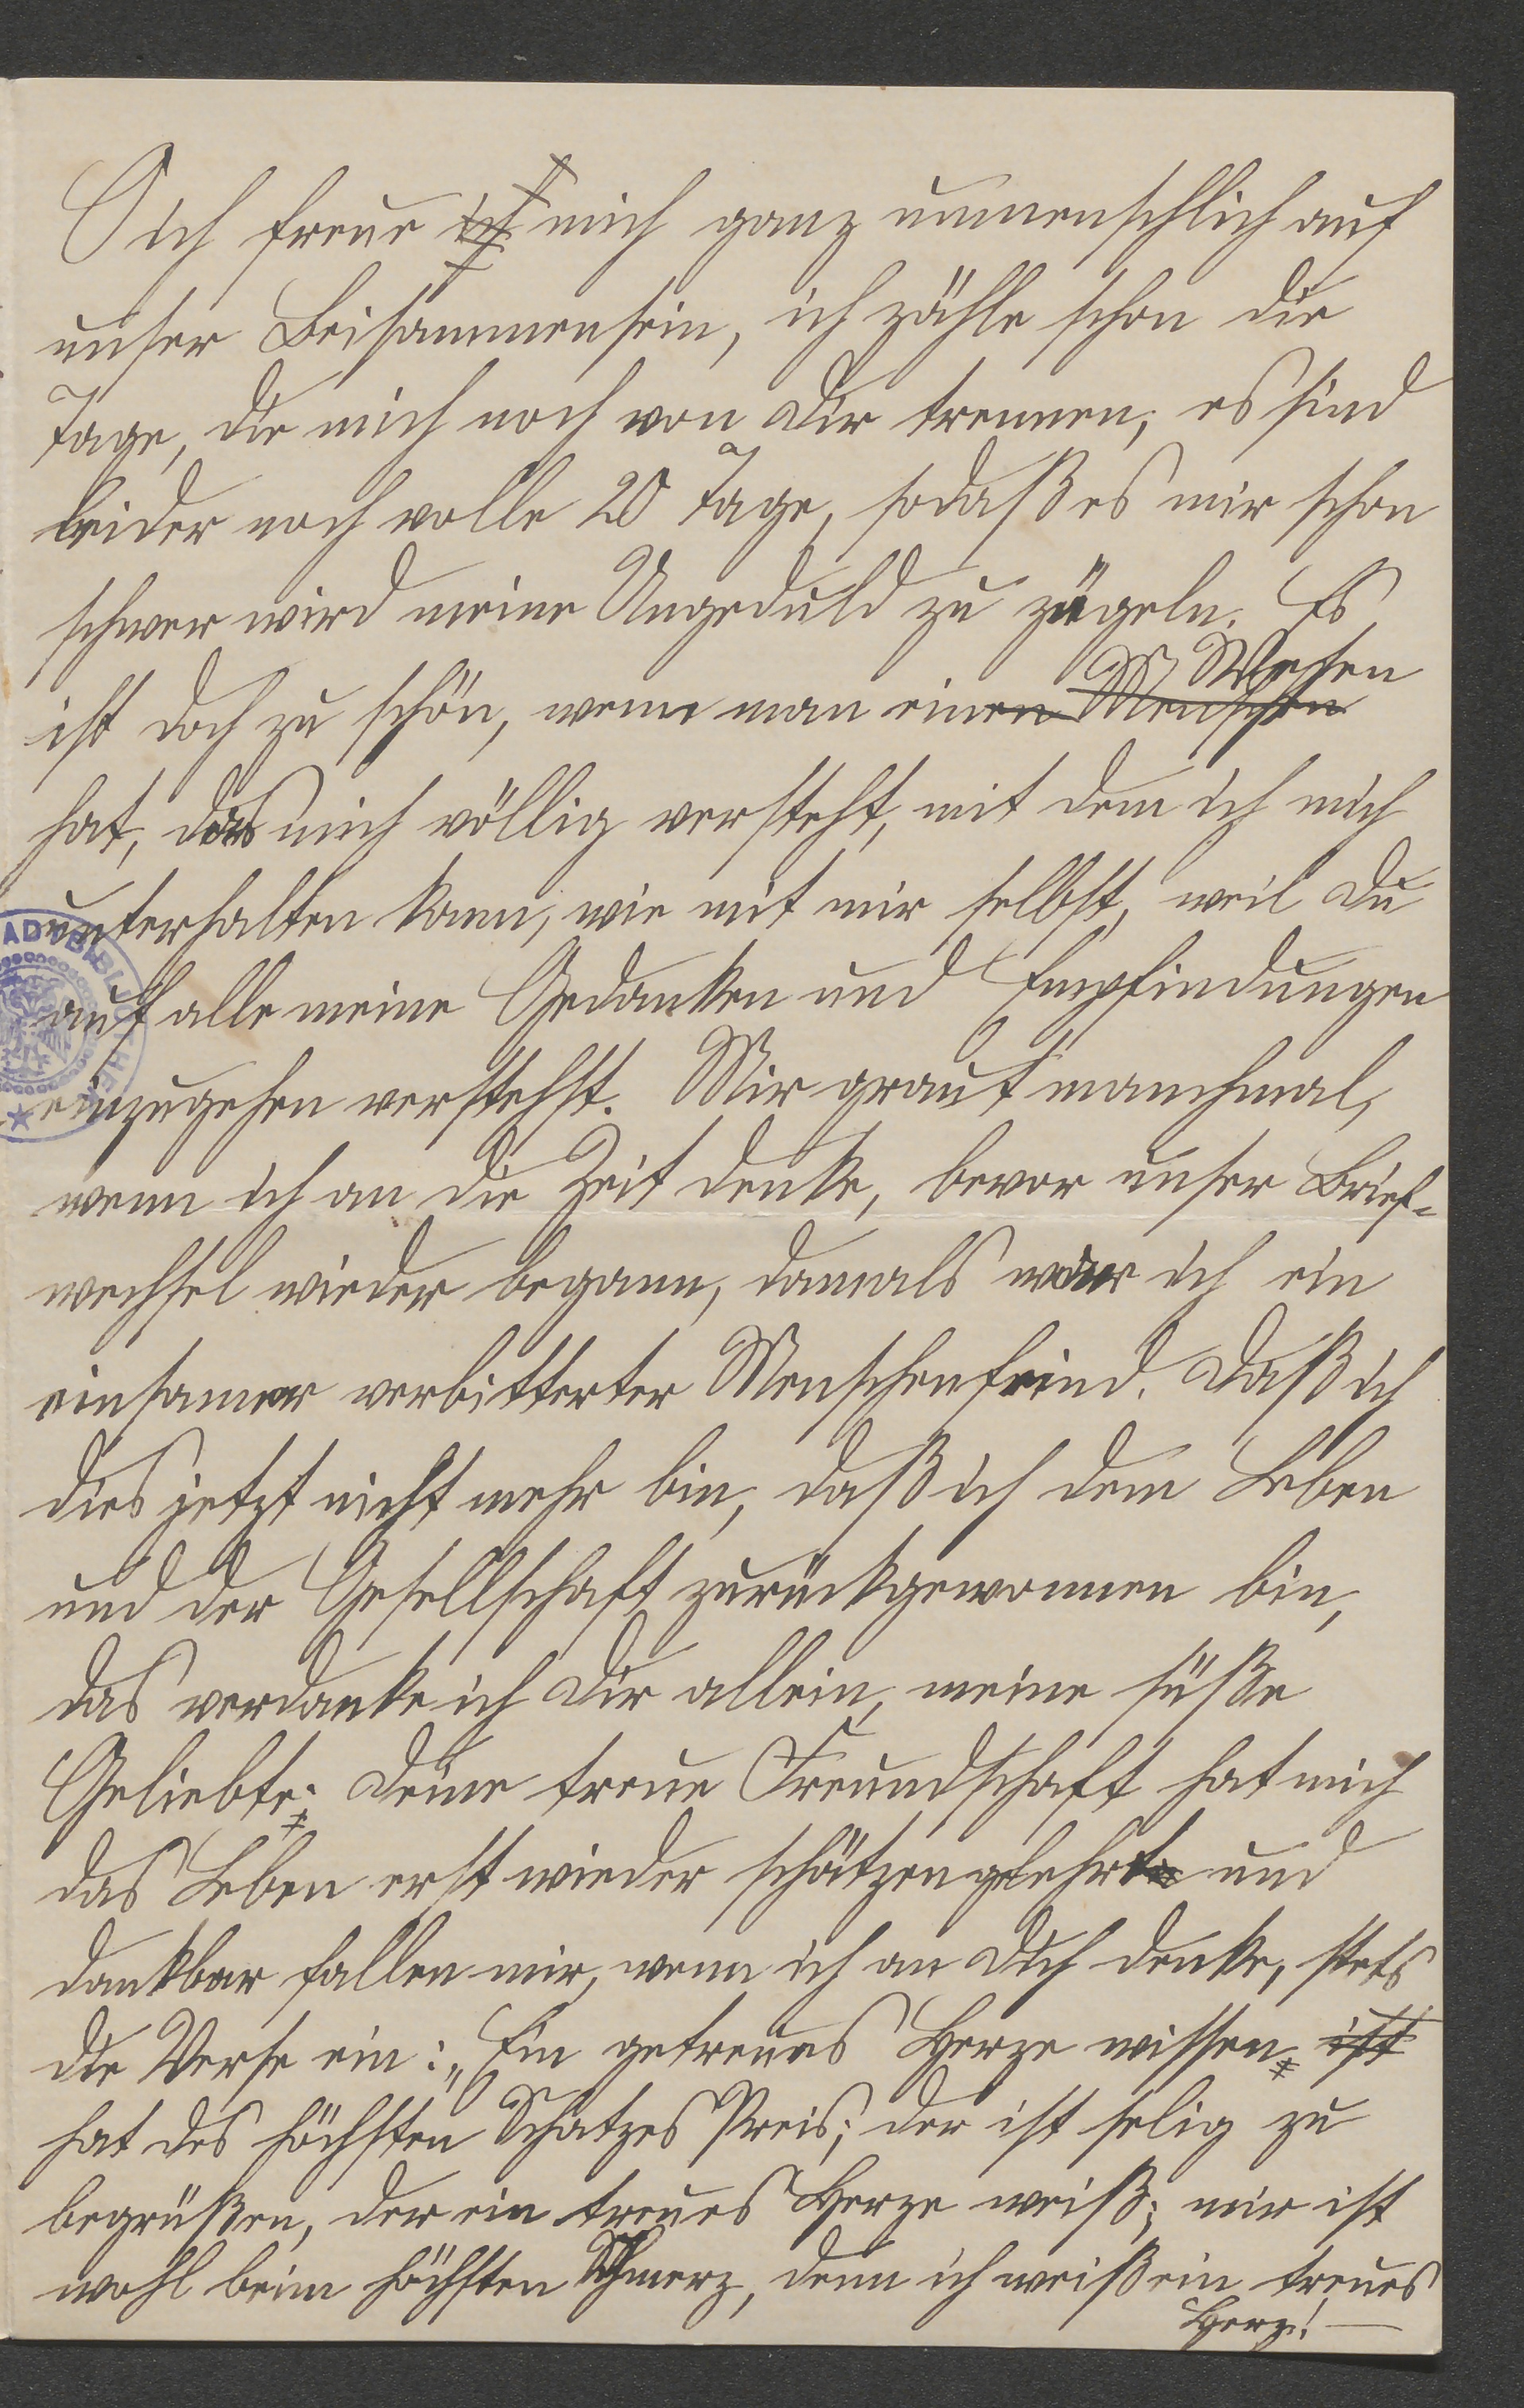 O ich freue mich ganz unmenschlich auf
unser Beisammensein, ich zähle schon die
Tage, die mich noch von Dir trennen, es sind
leider noch volle 20 Tage, sodaß es mir schon
schwer wird meine Ungeduld zu zügeln. Es
Wesen
ist doch zu schön, wenn man einen Menschen
hat, das mich völlig versteht, mit dem ich mich
unterhalten kann, wie mit mir selbst, weil Du
auf alle meine Gedanken und Empfindungen
einzugehen verstehst. Mir graut manchmal,
wenn ich an die Zeit denke, bevor unser Brief-
wechsel wieder begann, damals war ich ein
einsamer verbitterter Menschenfeind. Daß ich
dies jetzt nicht mehr bin, daß ich dem Leben
und der Gesellschaft zurückgewonnen bin,
das verdanke ich Dir allein, meine süße
Geliebte; Deine treue Freundschaft hat mich
das Leben erst wieder schätzen gelehrt und
dankbar fallen mir, wenn ich an Dich denke, stets
die Verse ein: „Ein getreues Herze wissen, ist
hat des höchsten Schatzes Preis; der ist selig zu
begrüßen, der ein treues Herze weiß; mir ist
wohl beim höchsten Schmerz, denn ich weiß ein treues
Herz! —